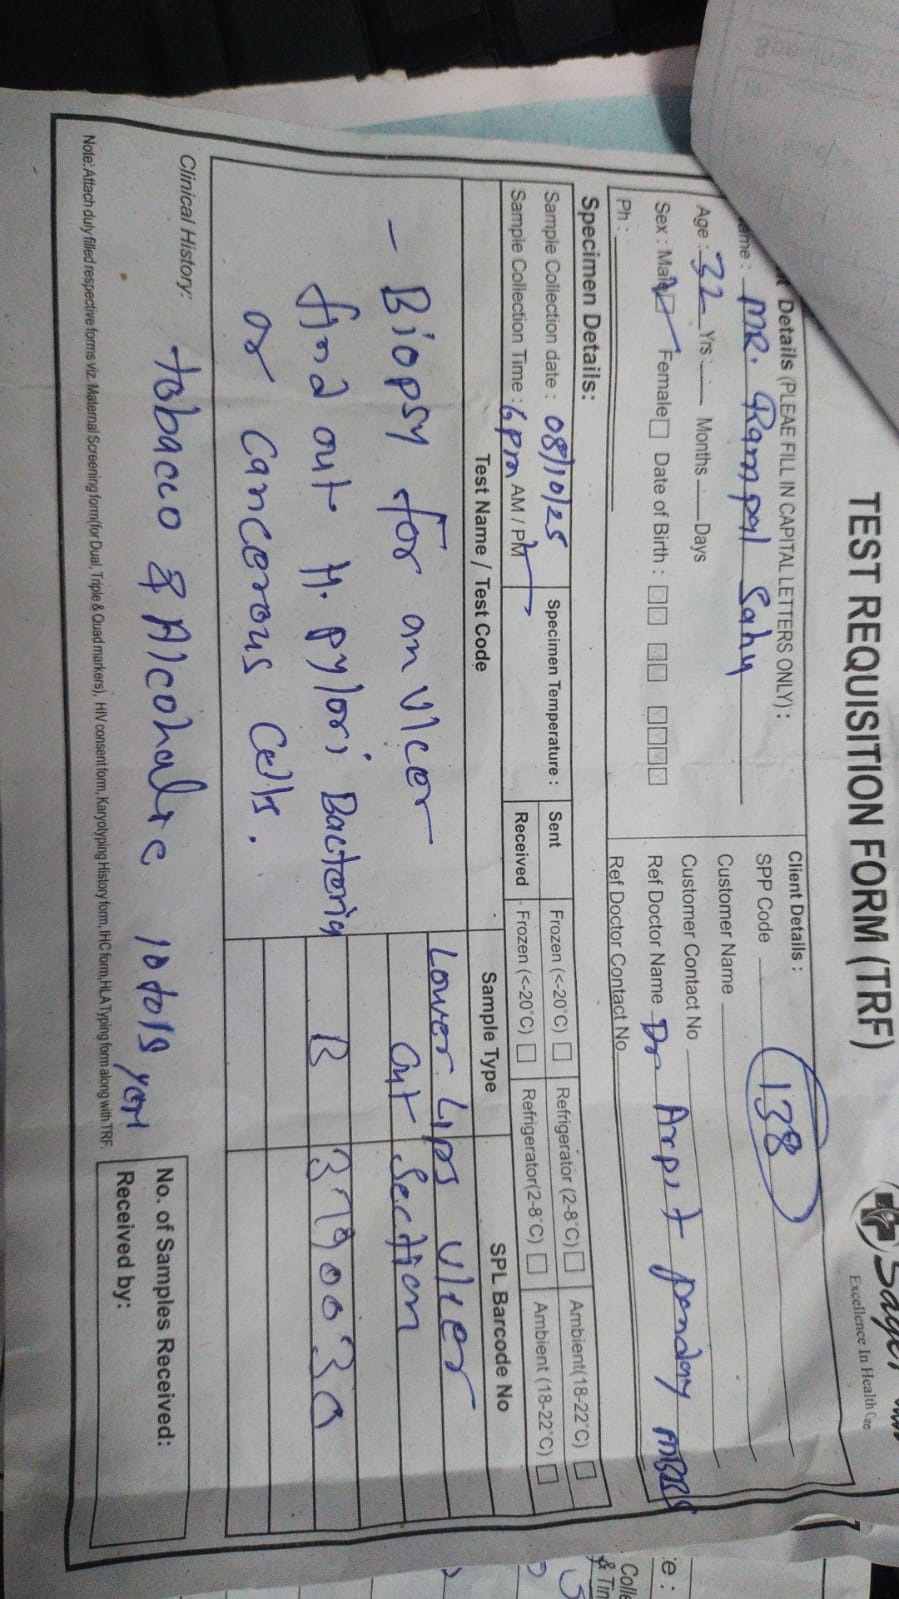 TEST REQUISITION FORM (TRF)
Excellence In Health
Details (PLEAE FILL IN CAPITAL LETTERS ONLY) :
ame : MR. Rampal Sahu
Age : 32 Yrs : Months Days
Sex : Male Female Date of Birth :
Ph :
Client Details :
SPP Code 138
Customer Name
Customer Contact No
Ref Doctor Name Dr Arpit panday MBBS
Ref Doctor Contact No
Specimen Details:
Sample Collection date : 08/10/25 Specimen Temperature : Sent Frozen (<-20°C) Refrigerator (2-8°C) Ambient(18-22°C)
Sample Collection Time : 6pm AM / PM Received Frozen (<-20°C) Refrigerator(2-8°C) Ambient (18-22°C)
Test Name / Test Code Sample Type SPL Barcode No
- Biopsy for an Vlcer
find out H. pylori Bacteria
or Cancerous Cells.
Lower Lips Vlcer
Cut Section
B
Clinical History: tobacco & Alcohalre 10 to 15 year
No. of Samples Received:
Received by:
Note:Attach duly filled respective forms viz. Maternal Screening form(for Dual, Triple & Quad markers), HIV consent form, Karyotyping History form, IHC form,HLA Typing form along with TRF.